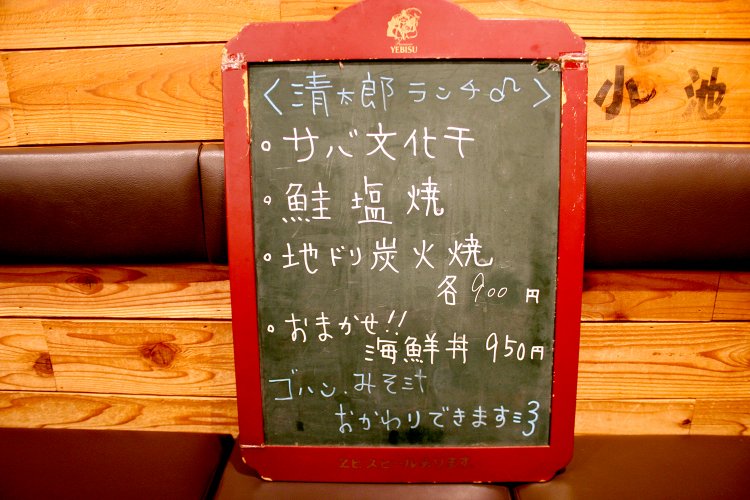 YEBISU
<清太郎ランチ♫>
小池
。サバ文化干
。鮭塩焼
。地ドリ炭火焼
各900円
。おまかせ!!
海鮮丼 950円
ゴハン、みそ汁
おかわりできます
ヱビスビールあります。